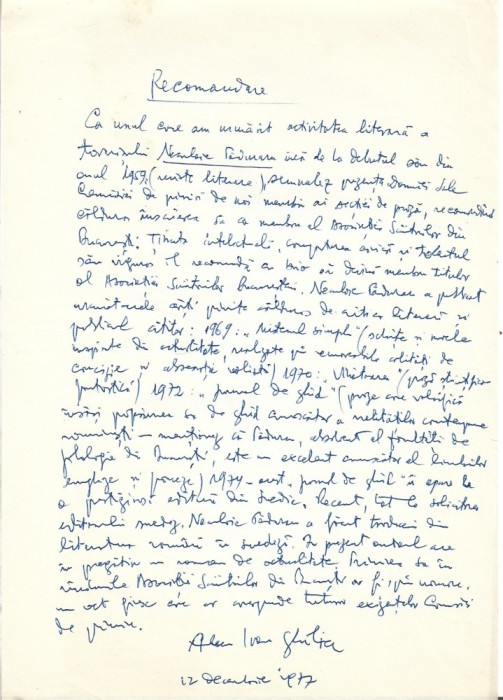 Recomandare
Ca unul care am urmărit activitatea literară a
scriitorului Neculae Pădurau încă de la debutul său din
anul 1957, (reviste literare) semnalez prezența Domniei Sale
Comisiei de primire de noi membri ai secției de proză, recomandând
călduros înscrierea sa ca membru al Asociației Scriitorilor din
București. Ținuta intelectuală, conștiința civică și talentul
său viguros îl recomandă ca să devină membru titular
al Asociației Scriitorilor București. Neculae Pădurau a publicat
următoarele cărți primite călduros de critica literară și
publicul cititor: 1969: " simplu" (schițe și nuvele
inspirate din actualitate, realizate cu remarcabile calități de
concizie și observație realistă) 1970: "Viitoarea" (proză științifico
fantastică) 1972: "Jurnal de ghid" (proze care valorifică
însăși profesiunea sa de ghid cunoscător a realităților contempora
românești — menționez că Pădurau, absolvent al facultății de
filologie din București, este un excelent cunoscător al limbilor
engleze și franceze) 1974 — acest "Jurnal de ghid" a apărut la
o prestigioasă editură din Suedia. Recent, tot la solicitarea
editorului suedez, Neculae Pădurau a făcut traduceri din
literatura română în suedeză. În prezent autorul are
în pregătire un roman de actualitate. Primirea sa în
rîndurile Asociației Scriitorilor din București ar fi, după mine,
un act just care ar corespunde tuturor exigențelor Comisiei
de primire.
Alecu Ivan Ghilia
12 decembrie 1977